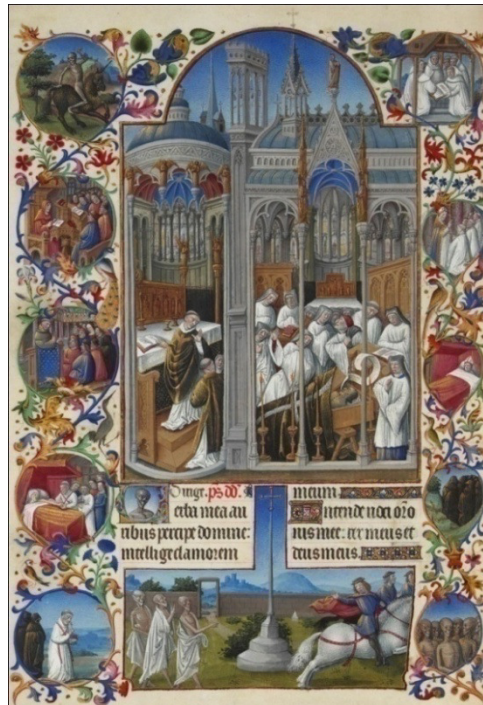 Dirige. ps dd.
Verba mea au
ribus percipe domine:
intellige clamorem
meum
Intende voci oro
nis mee: rex meus et
deus meus.